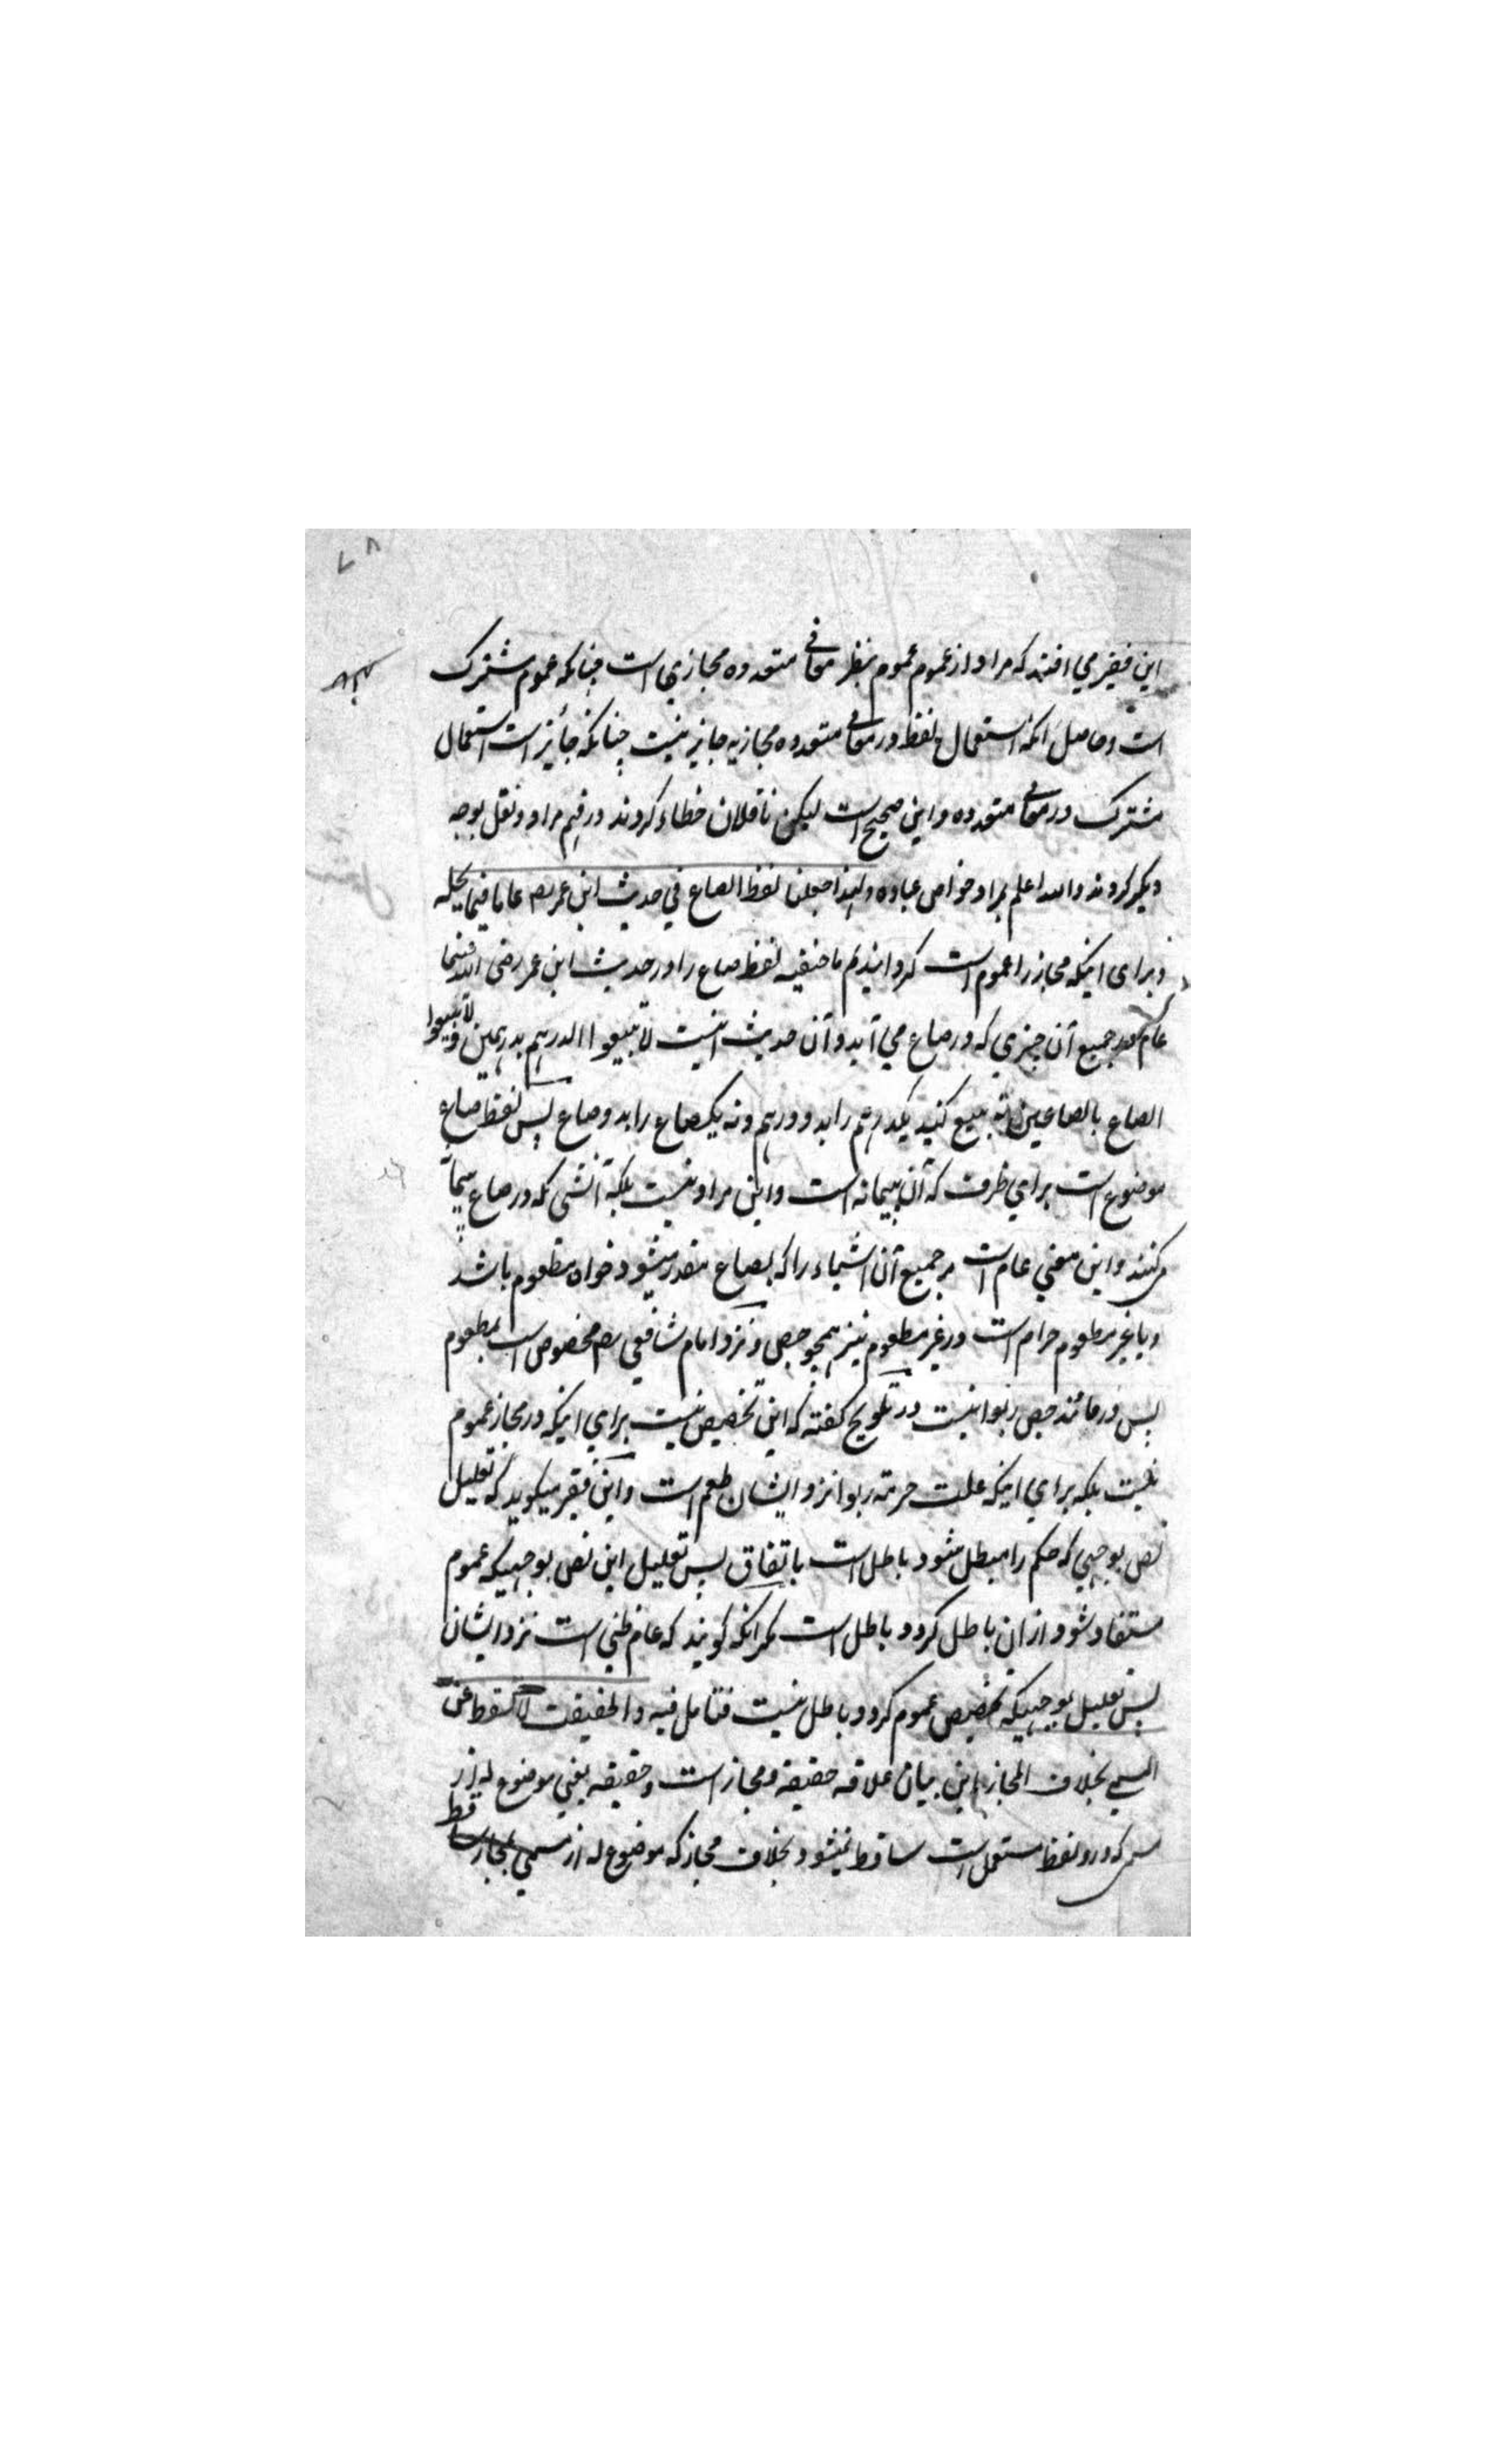 ۷۸
این فقیر می افتد که مراد از عموم عموم بنظر معانی متعدده مجازی است چنانکه عموم مشترک
است و حاصل آنکه استعمال لفظ در معانی متعدده مجازیه جایز نیست چنانکه جائز است استعمال
مشترک در معانی متعدده و این صحیح است لیکن ناقلان خطاء کردند در فهم مراد و نقل بوجه
دیگر کردند والله اعلم بمراد خواص عباده ولهذا جعلنا لفظ الصاع في حديث ابن عمر رض عاما فيما يحله
و برای اینکه مجاز را عموم است گردانیدیم ما حنفیه لفظ صاع را در حدیث ابن عمر رضی الله عنهما
عام در جمیع آن چیزی که در صاع می آید و آن حدیث اینست لا تبیعوا الدرهم بدرهمین ولا تبیعوا
الصاع بالصاعین نه بیع کنید یکدرهم را بدو درهم و نه یکصاع را بدو صاع پس لفظ صاع
موضوع است برای ظرف که آن پیمانه است و این مراد نیست بلکه آنشی که در صاع پیمانه
می کنند و این معنی عام است مر جمیع آن اشیاء را که بصاع مقدر میشود خواه مطعوم باشد
و یا غیر مطعوم حرام است در غیر مطعوم نیز همچو جص و نزد امام شافعی رح مخصوص است بمطعوم
پس در مانند جص ربوا نیست در تلویح گفته که این تخصیص نیست برای اینکه در مجاز عموم
نیست بلکه برای اینکه علت حرمة ربوا نزد ایشان طعم است و این فقیر میگوید که تعلیل
نص بوجهی که حکم را مبطل شود باطل است باتفاق پس تعلیل این نص بوجهیکه عموم
مستفاد شود از ان باطل گردد باطل است مگر آنکه گویند که عام ظنی است نزد ایشان
پس تعلیل بوجهیکه مخصص عموم گردد باطل نیست فتامل فیه والحقیقت لا تسقط عن
المسمی بخلاف المجاز این بیان علاقه حقیقة و مجاز است و حقیقه یعنی موضوع له از
مسمی که درو لفظ مستعمل است ساقط نمیشود بخلاف مجاز که موضوع له از مسمی بمجاز ساقط